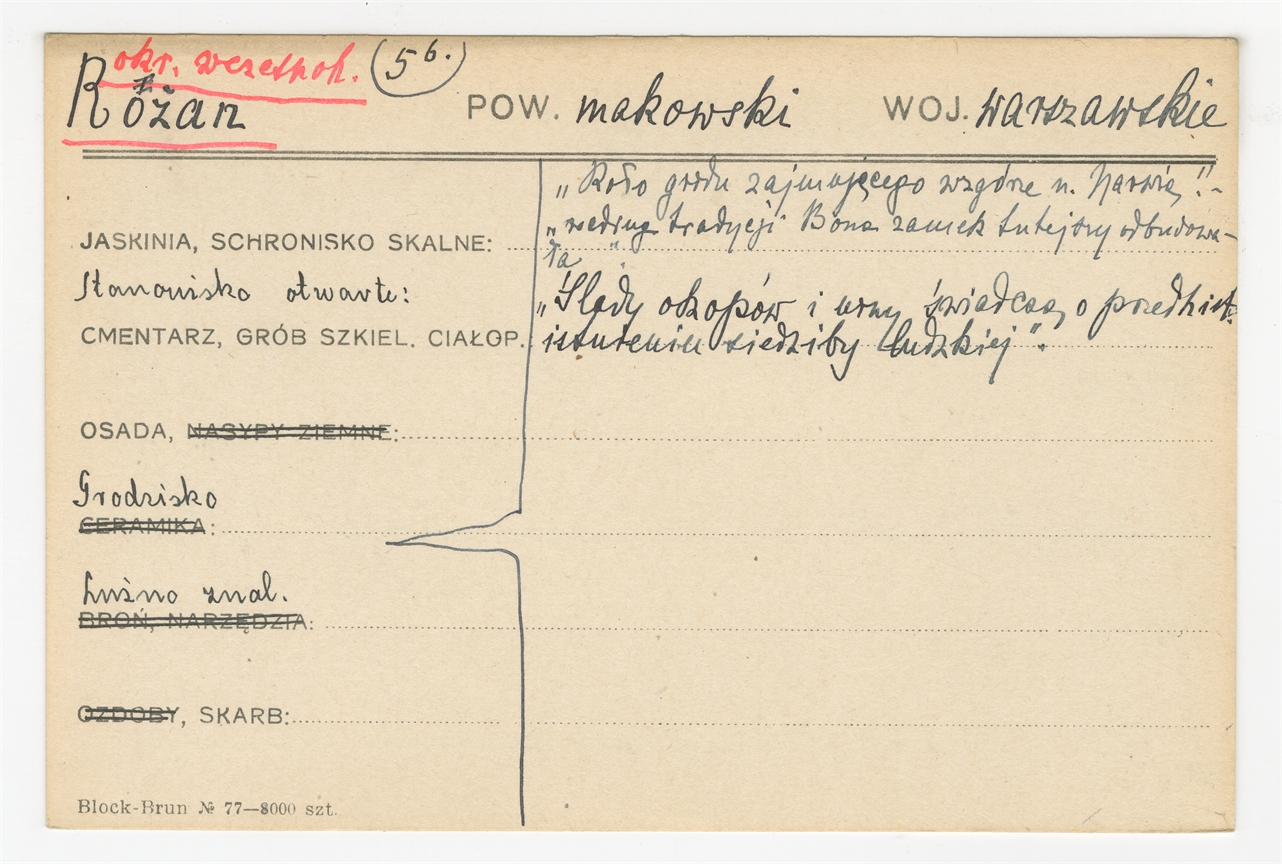 okr. wczespol. (5 b.)
Różan POW. makowski WOJ. warszawskie
„Koło grodu zajmującego wzgórze n. Narwią!" -
„według tradycji Bona zamek tutejszy odbudowa-
JASKINIA, SCHRONISKO SKALNE:
ła"
Stanowisko otwarte:
„Ślady okopów i urny świadczą o przedhist.
CMENTARZ, GRÓB SZKIEL. CIAŁOP. istnieniu siedziby ludzkiej".
OSADA, NASYPY ZIEMNE:
Grodzisko
CERAMIKA:
Luźno znal.
BROŃ, NARZĘDZIA:
OZDOBY, SKARB:
Block-Brun № 77—8000 szt.